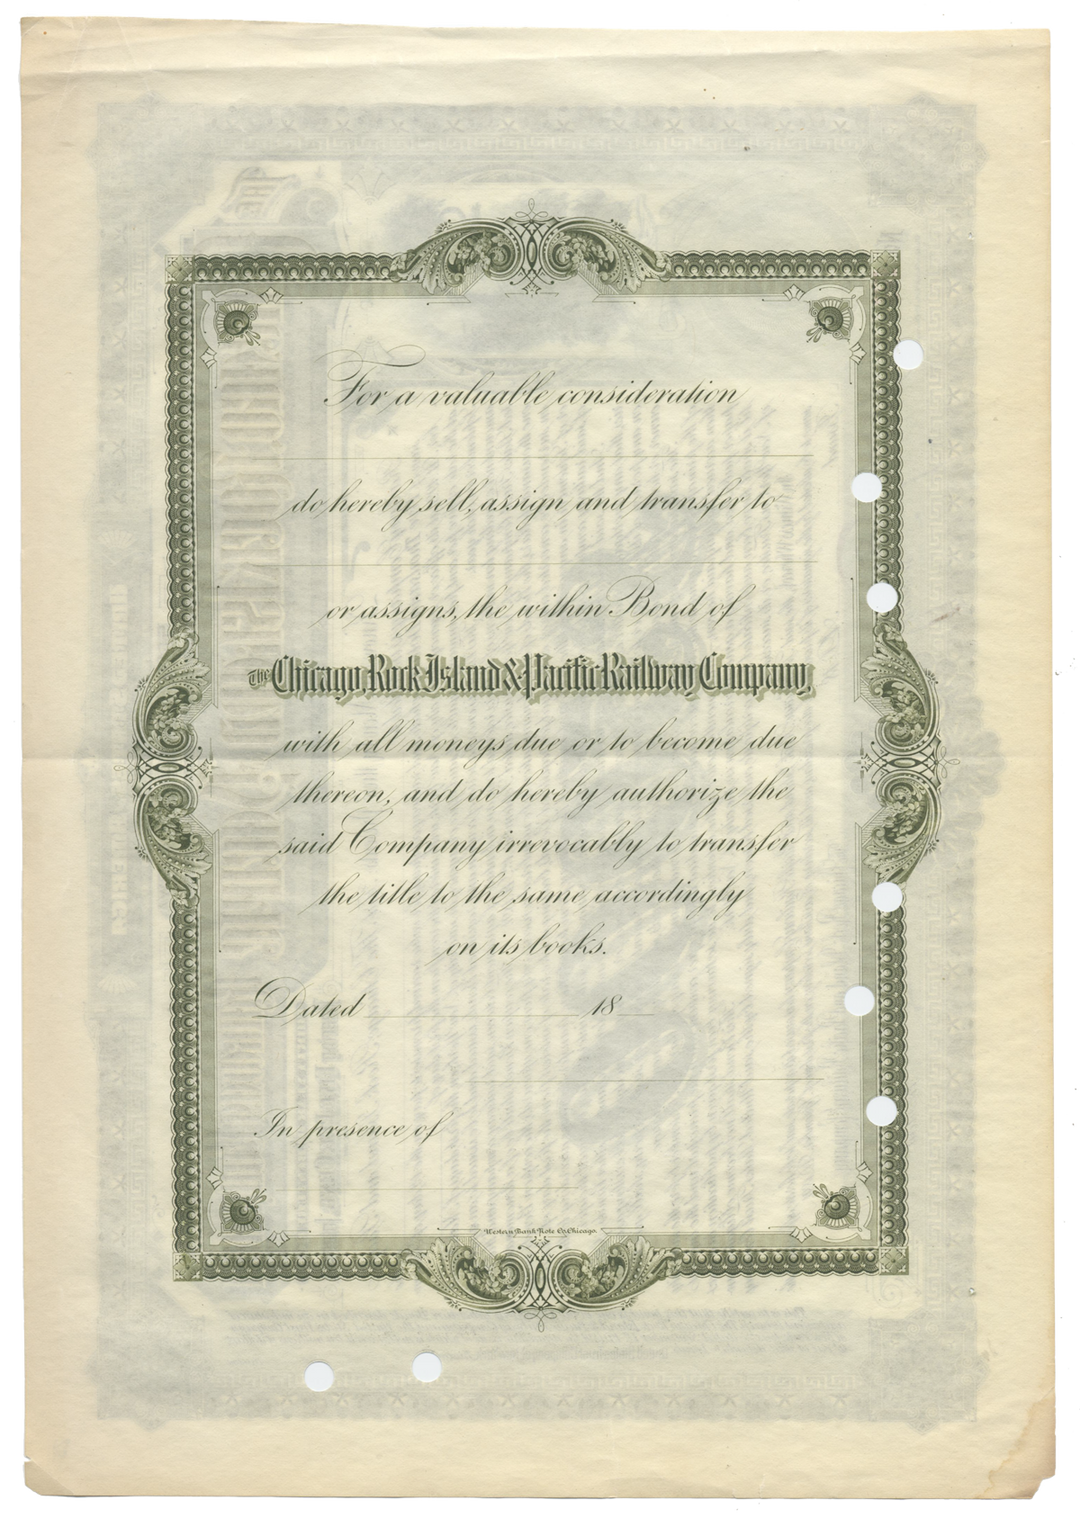 For a valuable consideration
do hereby sell, assign and transfer to
or assigns, the within Bond of
The Chicago, Rock Island & Pacific Railway Company,
with all moneys due or to become due
thereon, and do hereby authorize the
said Company irrevocably to transfer
the title to the same accordingly
on its books.
Dated 18
In presence of
Western Bank Note Co. Chicago.